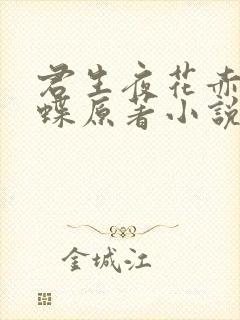 君生夜花赤
蝶原著小說
金城江